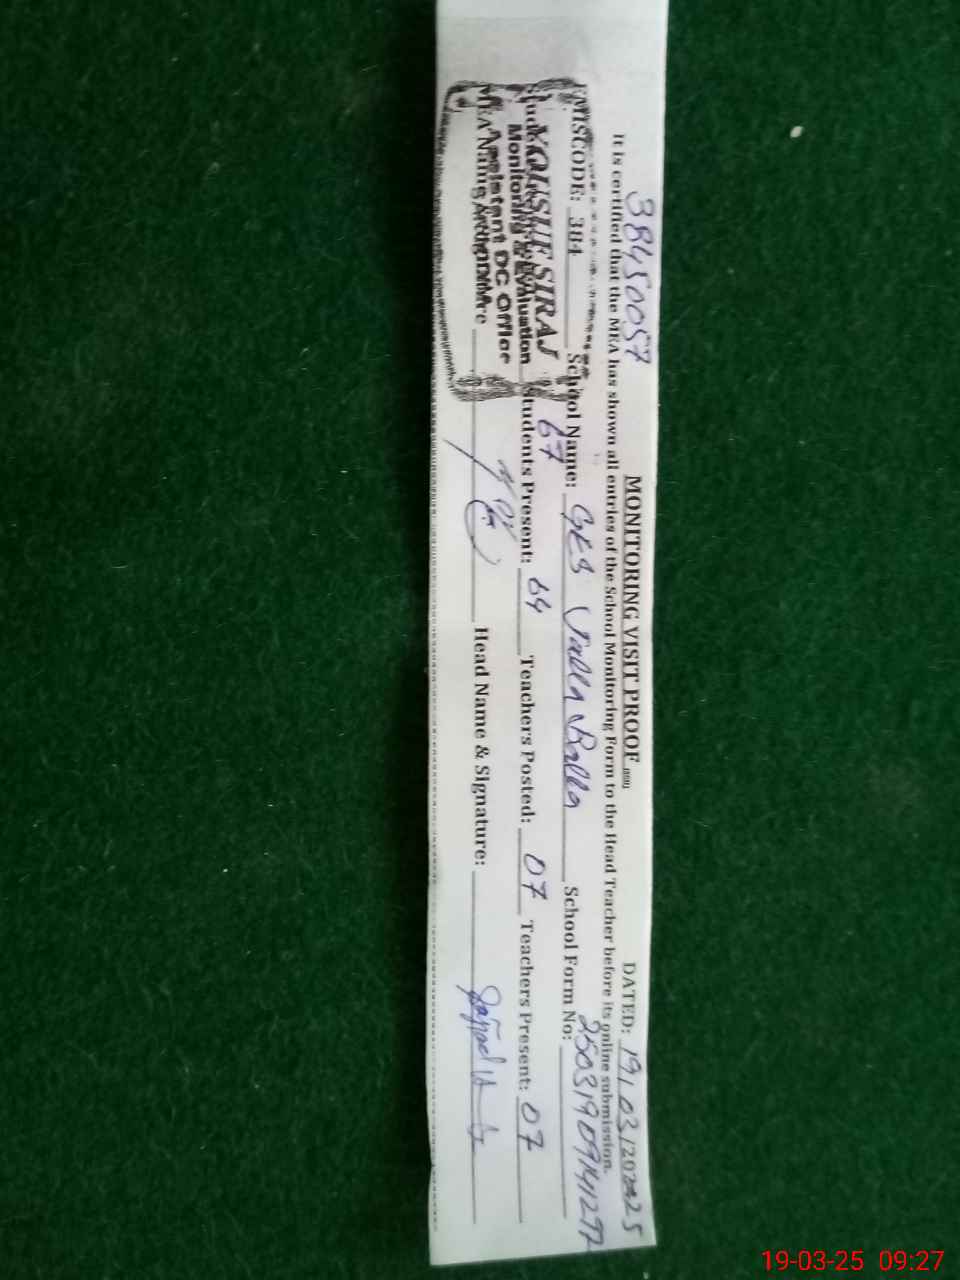 38450057 MONITORING VISIT PROOF DATED: 19/03/2025
It is certified that the MEA has shown all entries of the School Monitoring Form to the Head Teacher before its online submission.
EMISCODE: 384 School Name: GES Jalla Balla School Form No: 250319091411297
67 Students Present: 64 Teachers Posted: 07 Teachers Present: 07
MEA Name & Signature Head Name & Signature:
YOUSUF SIRAJ
Monitoring & Evaluation
Assistant DC Office
19-03-25 09:27